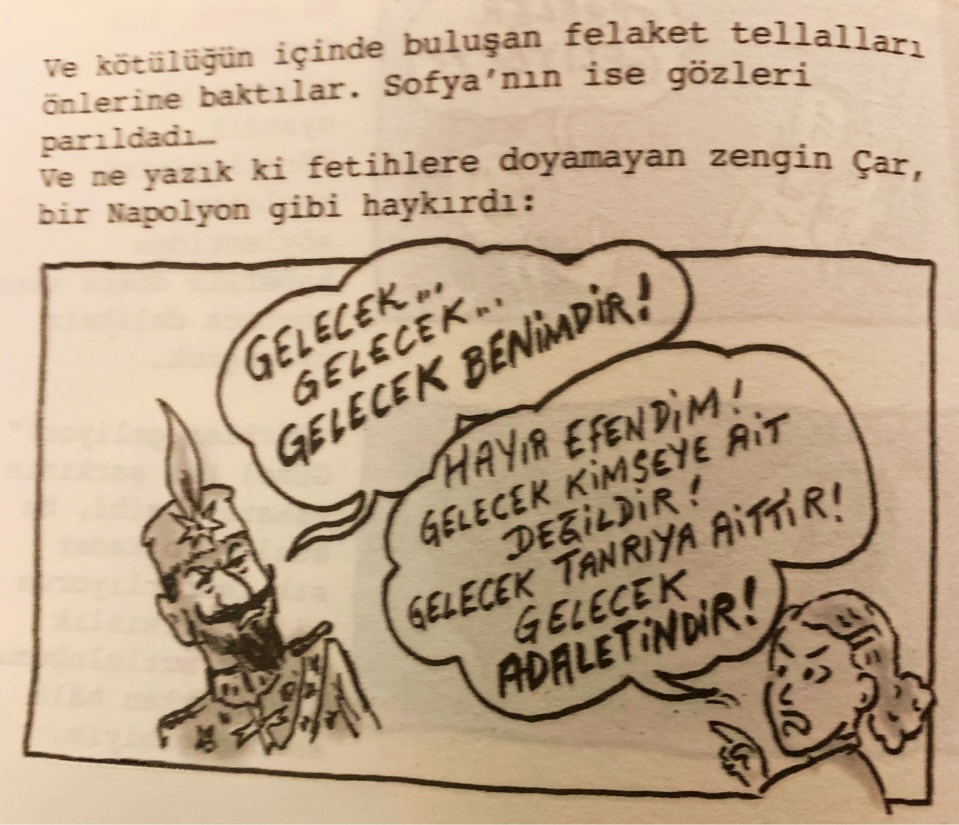 Ve kötülüğün içinde buluşan felaket tellalları
önlerine baktılar. Sofya'nın ise gözleri
parıldadı…
Ve ne yazık ki fetihlere doyamayan zengin Çar,
bir Napolyon gibi haykırdı:
GELECEK...
GELECEK...
GELECEK BENİMDİR!
HAYIR EFENDİM!
GELECEK KİMSEYE AİT
DEĞİLDİR!
GELECEK TANRIYA AİTTİR!
GELECEK
ADALETİNDİR!